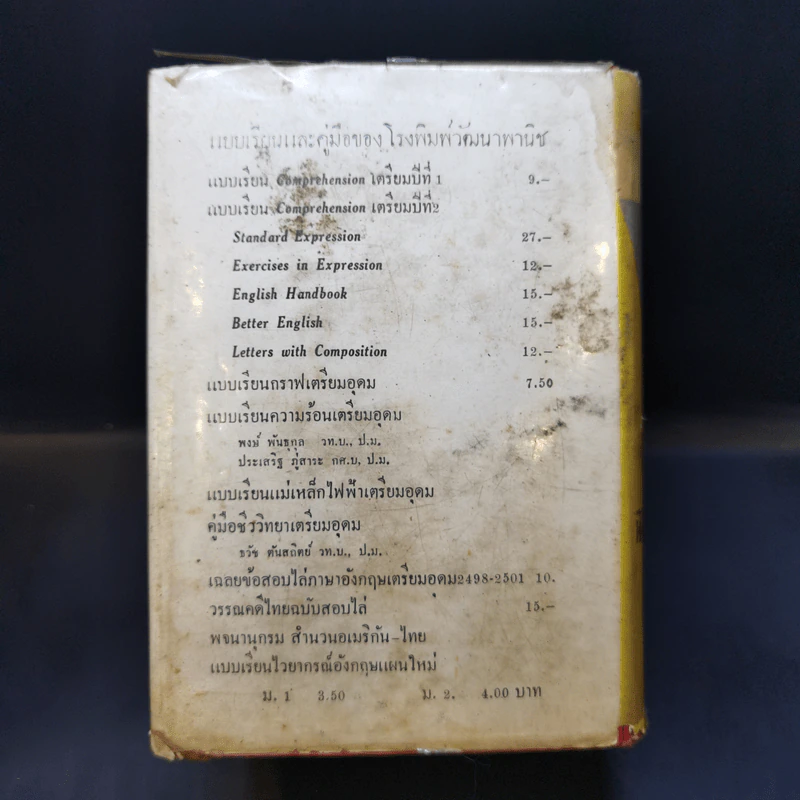 แบบเรียนและคู่มือของ โรงพิมพ์วัฒนาพานิช
แบบเรียน Comprehension เตรียมปีที่ 1 9.–
แบบเรียน Comprehension เตรียมปีที่2
Standard Expression 27.–
Exercises in Expression 12.–
English Handbook 15.–
Better English 15.–
Letters with Composition 12.–
แบบเรียนกราฟเตรียมอุดม 7.50
แบบเรียนความร้อนเตรียมอุดม
พงษ์ พันธุกูล วท.บ., ป.ม.
ประเสริฐ ภู่สาระ กศ.บ, ป.ม.
แบบเรียนแม่เหล็กไฟฟ้าเตรียมอุดม
คู่มือชีววิทยาเตรียมอุดม
ธวัช ตันสถิตย์ วท.บ., ป.ม.
เฉลยข้อสอบไล่ภาษาอังกฤษเตรียมอุดม2498-2501 10.
วรรณคดีไทยฉบับสอบไล่ 15.–
พจนานุกรม สำนวนอเมริกัน-ไทย
แบบเรียนไวยากรณ์อังกฤษแผนใหม่
ม. 1 3.50 ม. 2. 4.00 บาท